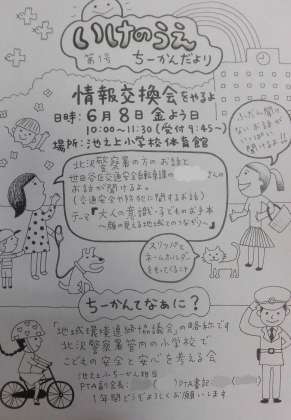 いけのうえ
第1号
ちーかんだより
情報交換会をやるよ
日時：6月8日金よう日
10:00〜11:30(受付9:45〜)
場所：池之上小学校体育館
北沢警察署の方のお話と
世田谷区交通安全
さんの
お話が聞けるよ。
(交通安全や防犯に関するお話)
テーマ『大人の意識・子どものお手本
〜顔の見える地域とのつながり〜』
ふだん聞け
ないお話が
聞けるよ！
スリッパと
ネームホルダー
をもってきてニャ
ちーかんてなあに？
「地域環境連絡協議会」の略称です
北沢警察署管内の小学校で
こどもの安全と安心を考える会
池之上小ちーかん担当
PTA副会長：
PTA書記
1年間どうぞよろしくお願いします